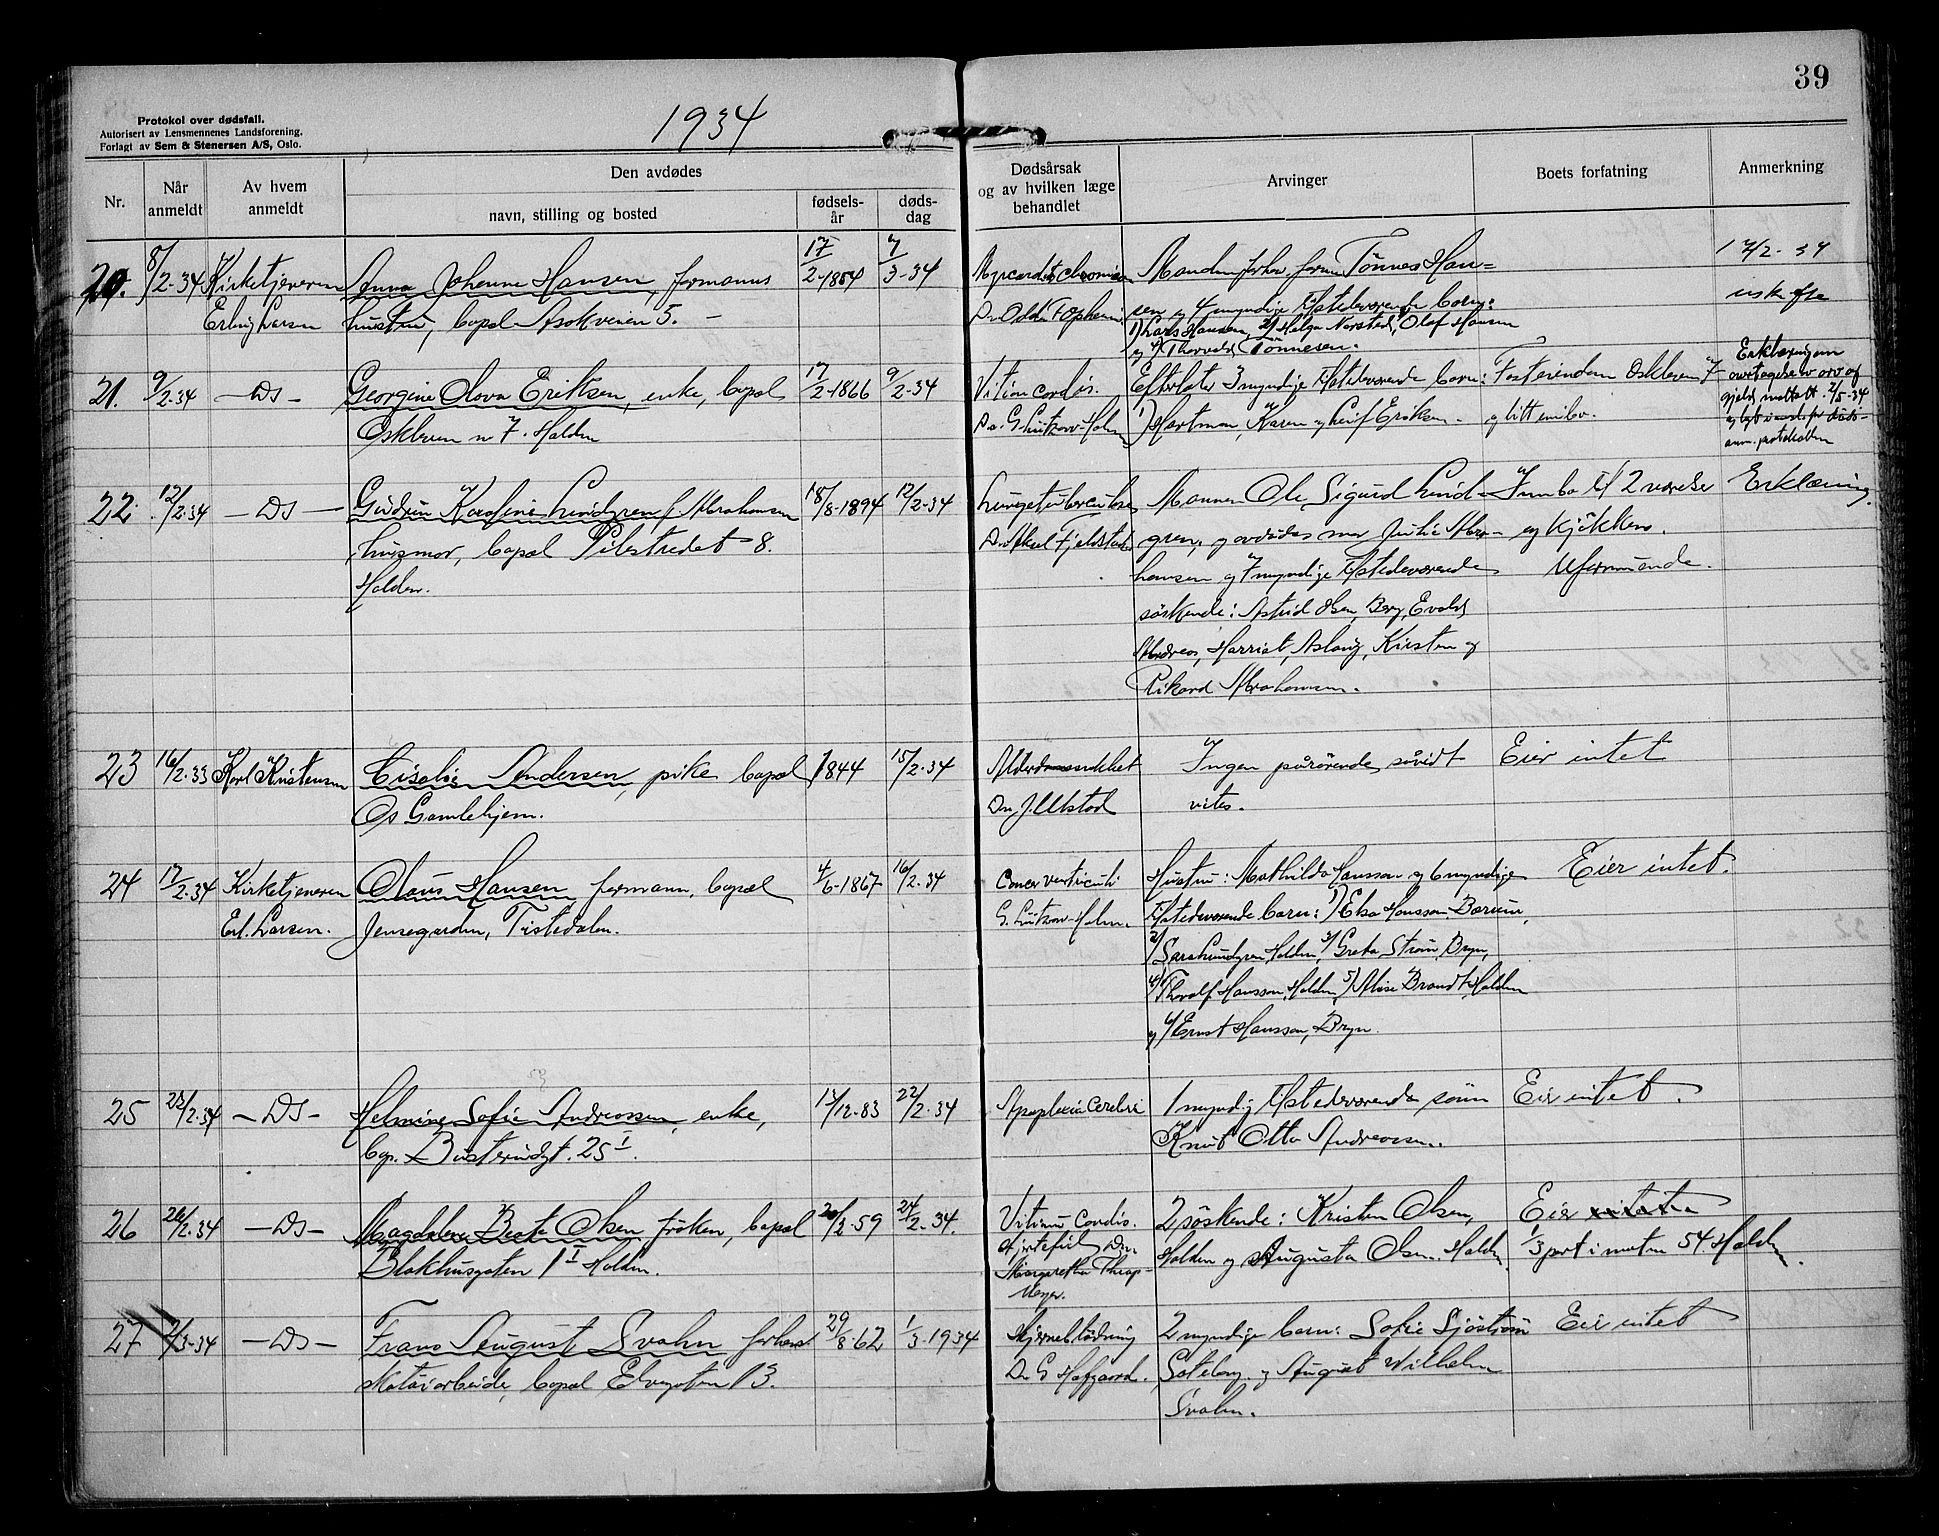 39
1934
Protokol over dødsfall.
Autorisert av Lensmennenes Landsforening.
Forlagt av Sem & Stenersen A/S, Oslo.
Nr.
Når anmeldt
Av hvem anmeldt
Den avdødes
navn, stilling og bosted
fødsels-år
døds-dag
Dødsårsak og av hvilken læge behandlet
Arvinger
Boets forfatning
Anmerkning
20. 8/2-34 Kirketjeneren Anna Johanne Hansen, formanns 17/2-1854 7/3-34
Erling Larsen hustru, bopæl Asakveien 5. —
Tönnes Han=
sen og 4 myndige tilstedeværende barn:
1) Lars Hansen, 2) Helga Norsted, Olaf Hansen
og 4) Thorvald Tönnesen.
17/2-34
21. 9/2-34 — Ds — Georgine Olava Eriksen, enke, bopæl 17/2-1866 9/2-34
Oskleven nr 7. Halden
Vitium cordis.
Dr. G. Lützow-Holm
Efterlater 3 myndige tilstedeværende barn:
1) Hartman, Karen og Leif Eriksen.
Faste eiendom Oskleven 7
og litt innbo.
Erklæring om
overtagelse av arv og
gjeld mottatt 2/5-34
protokollen
22. 12/2-34 — Ds — Gudrun Karoline Lindgren f. Abrahamsen 18/8-1894 12/2-34
husmor, bopæl Pilestredet 8.
Halden.
Lungetuberculose
Dr. Aksel Fjeldstad
Mannen Ole Sigurd Lind-
gren, og avdødes mor Julie Abra-
hamsen og 7 myndige tilstedeværende
søskende: Astrid Olsen, Berg, Evald,
Andreas, Harriet, Aslaug, Kirsten og
Rikard Abrahamsen.
Innbo til 2 værelser
og kjøkken.
Uformuende.
Erklæring.
23 16/2-33 Karl Kristensen Ciselie Andersen, pike bopæl 1844 15/2-34
Os Gamlehjem.
Alderdomssvakhet
Dr. J. Ulstad
Ingen pårørende såvidt
vites.
Eier intet
24 17/2-34 Kirketjeneren Olaus Hansen formann, bopæl 4/6-1867 16/2-34
Erl. Larsen. Jensegarden, Tistedalen.
Cancer ventriculi
G. Lützow-Holm.
Hustru: Mathilde Hansson og 6 myndige
tilstedeværende barn: 1) Elsa Hansson Bærum,
2) Sara Lundgren Halden, 3) Greta Strøm, Bryn,
4) Thoralf Hansson, Halden, 5) Alise Brandt, Halden
og 6) Ernst Hansson, Bryn.
Eier intet.
25 23/2-34 — Ds — Helmine Sofie Andreassen, enke, 13/12-83 22/2-34
bop. Busterudgt. 25 I.
Apoplexia Cerebri
1 myndig tilstedeværende sønn
Knut Otto Andreassen.
Eier intet.
26 26/2-34 — Ds — Magdalene Beate Olsen, frøken, bopæl 20/2-59 24/2-34.
Blokhusgaten 1 I Halden.
Vitium Cordis.
Hjertefeil Dr.
Margaretha Thrap-
Meyer.
2 søskende: Kristen Olsen,
Halden og Augusta Olsen. Halden
Eier intet.
1/3 part i matr. 54 Halden.
27 2/3-34 — Ds — Frans August Svahn forhenv. 29/8-62 1/3-1934
bopæl Elvegaten 13.
Hjerneblødning
Dr. G Hofgaard.
2 myndige barn: Sofie Sjöström
Göteborg og August Wilhelm
Svahn.
Eier intet